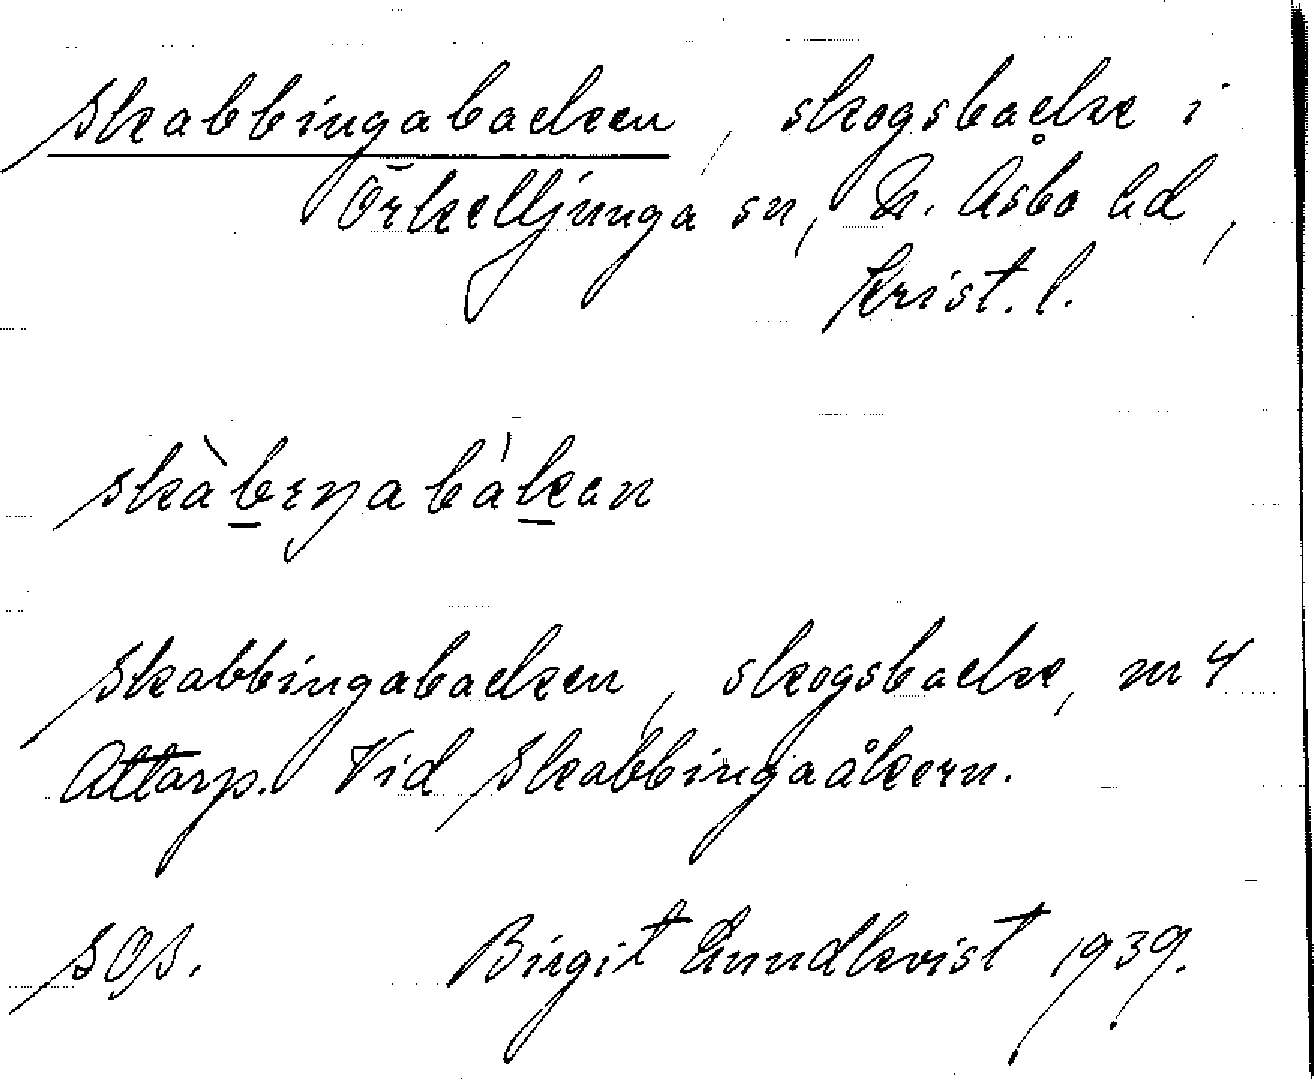 Skabbingabacken, skogsbacke i
Örkelljunga sn, N. Åsbo hd,
Krist. l.
skàbeŋabàkan
Skabbingabacken, skogsbacke, nr 4
Attarp. Vid Skabbingaåkern.
SOS. Birgit Lundkvist 1939.